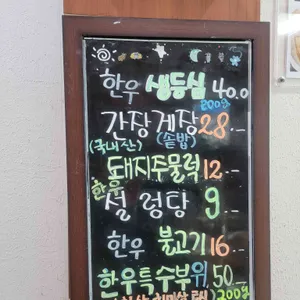 한우 생등심 40.0
200g
간장게장 28.-
(국내산) (솥밥)
돼지주물럭 12.-
한우
설렁탕 9.-
한우 불고기 16.-
한우특수부위 50.-
200g